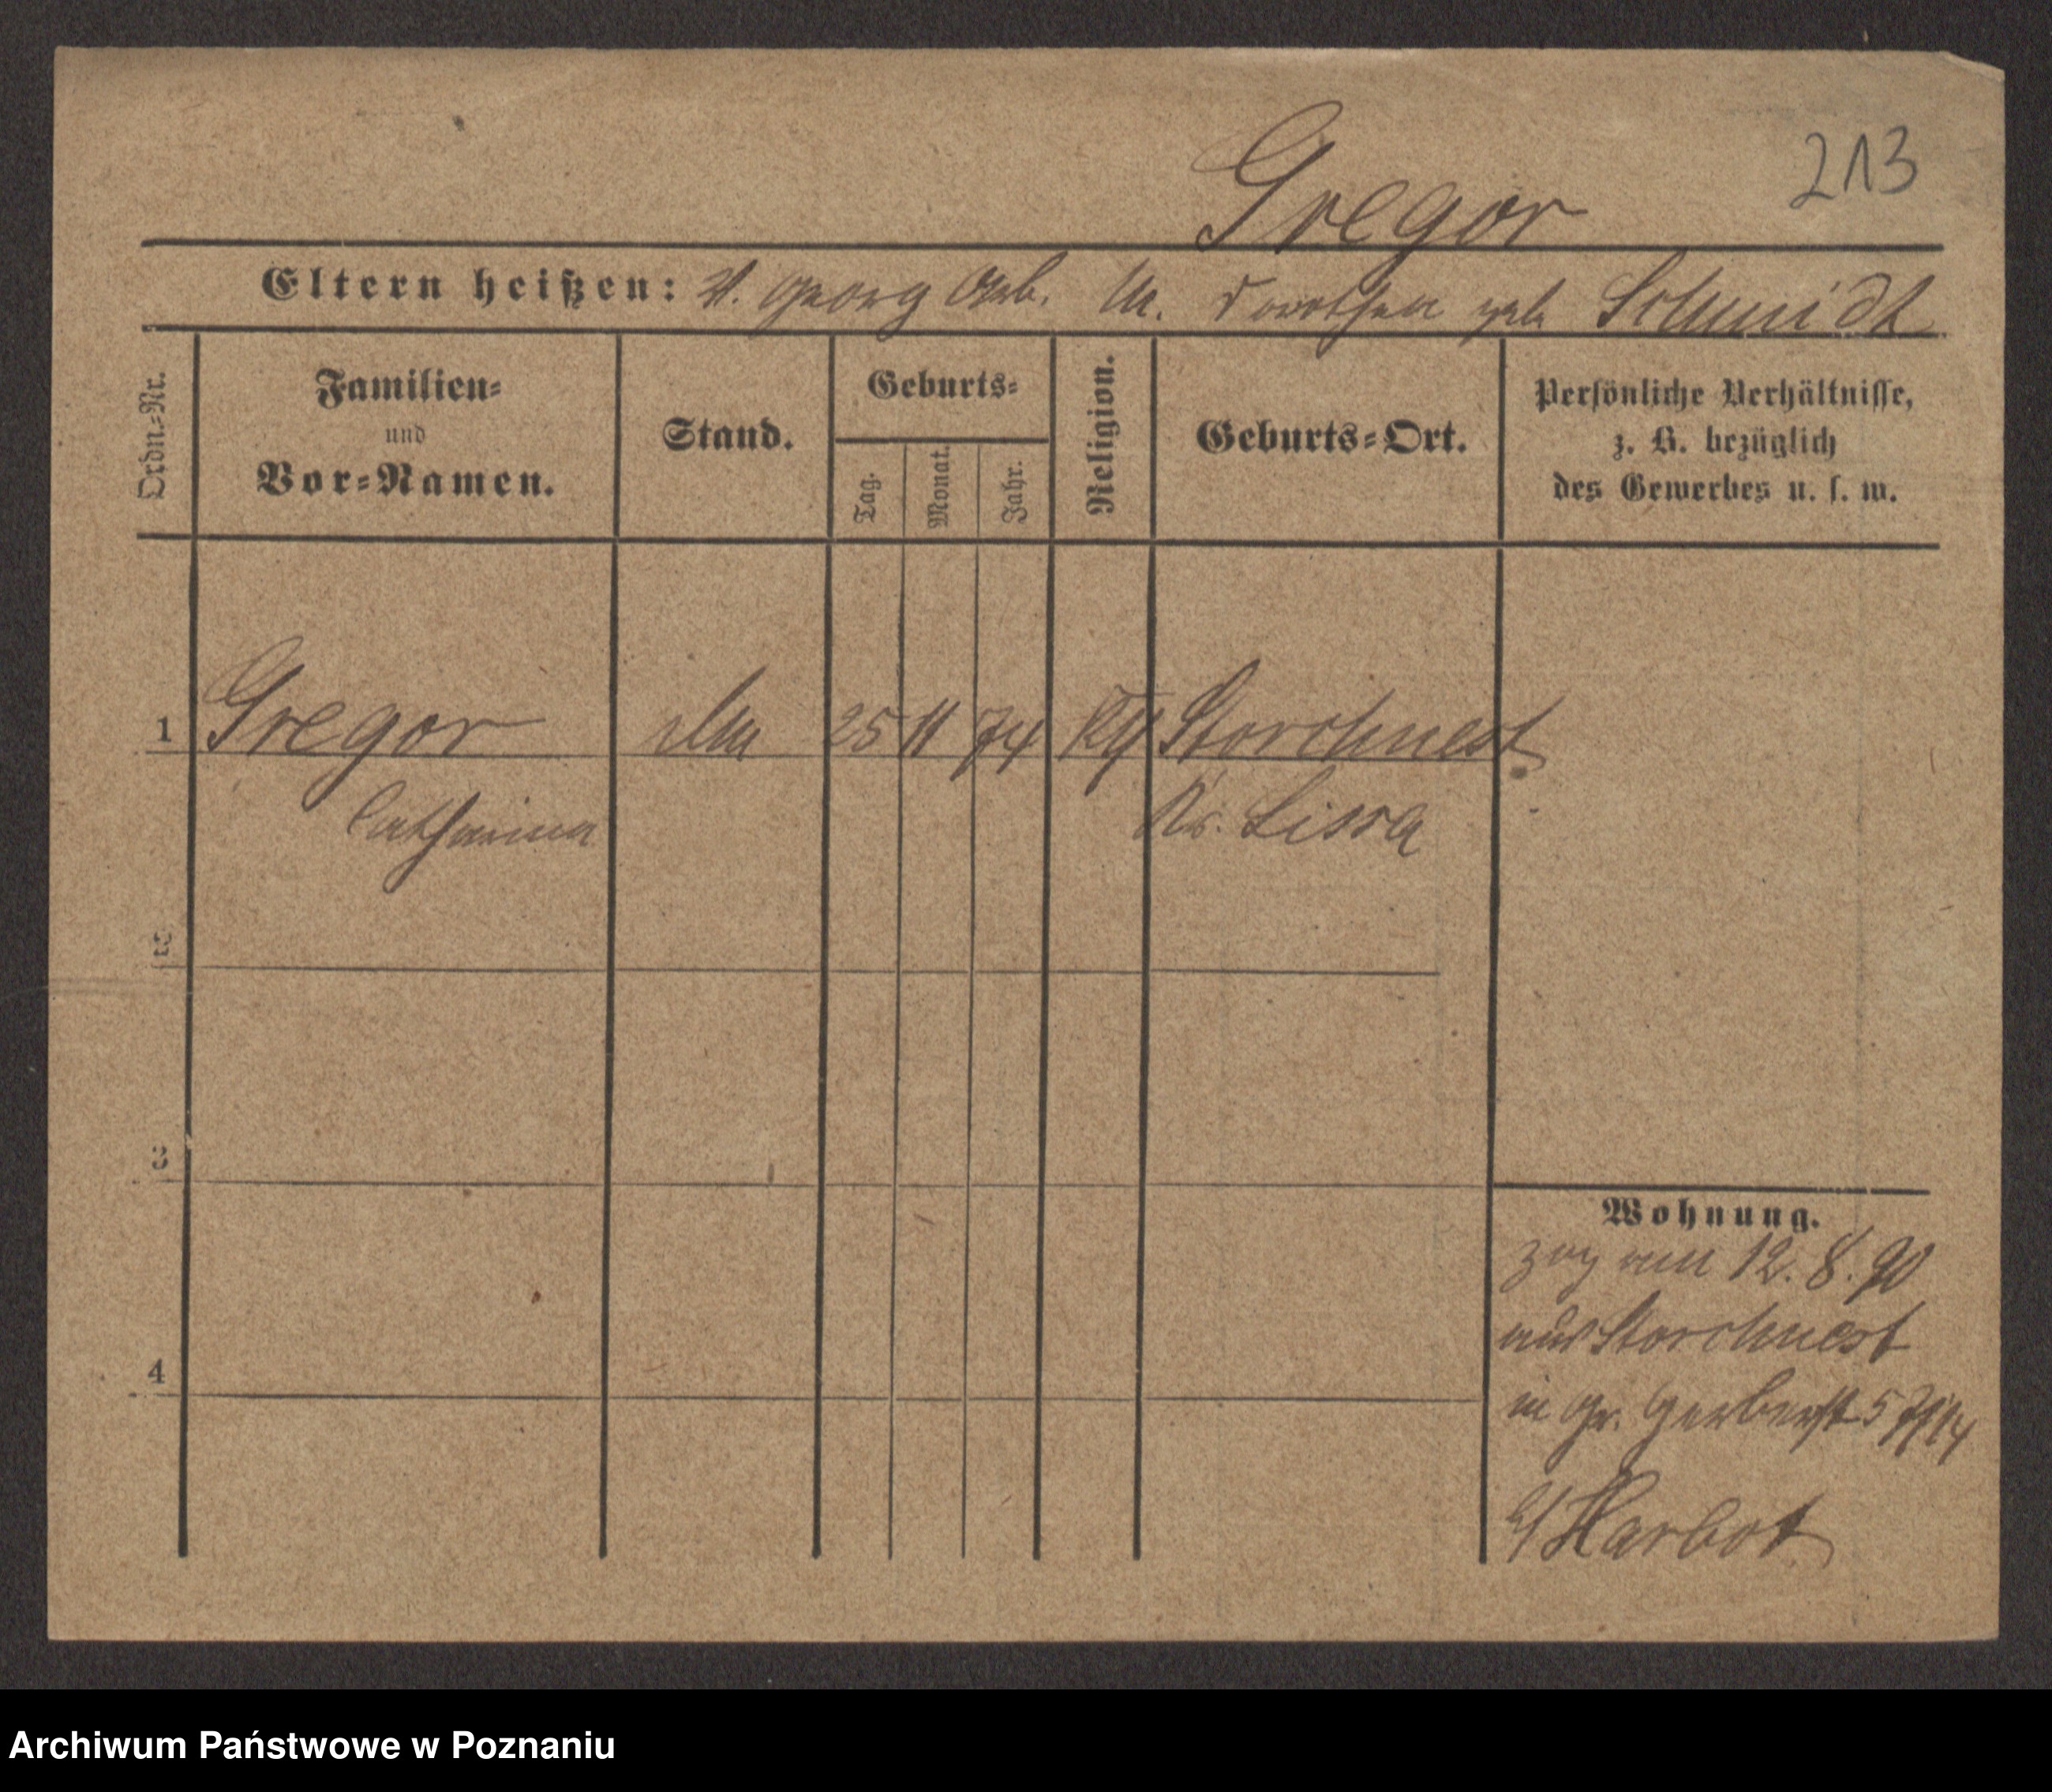 213
Gregor
Eltern heißen: V. Georg Arb. M. Dorothea geb. Schmidt
Ordn.=Nr.
Familien=
und
Vor=Namen.
Stand.
Geburts=
Tag.
Monat.
Jahr.
Religion.
Geburts=Ort.
Persönliche Verhältnisse,
z. B. bezüglich
des Gewerbes u. s. w.
1 Gregor 25 11 74 Storchnest
Catharina Kr. Lissa
2
3
4
Wohnung.
zog am 12. 8. 90
aus Storchnest
in Gr. Gerberst 5
Harbot
Archiwum Państwowe w Poznaniu